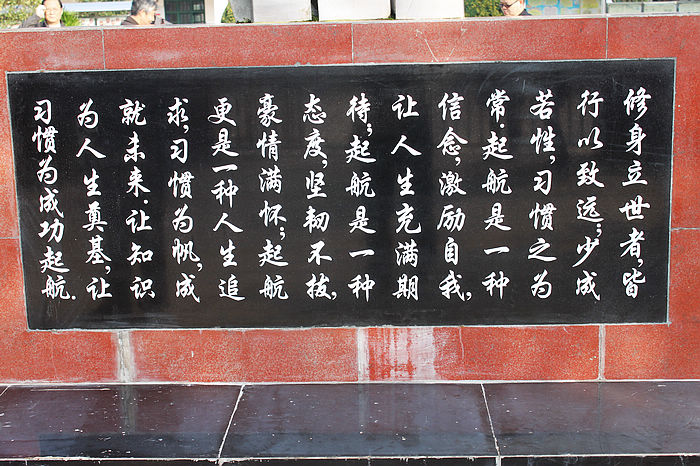 修身立世者，皆
行以致远；少成
若性，习惯之为
常。起航是一种
信念，激励自我，
让人生充满期
待；起航是一种
态度，坚韧不拔，
豪情满怀；起航
更是一种人生追
求，习惯为帆，成
就未来。让知识
为人生奠基，让
习惯为成功起航。